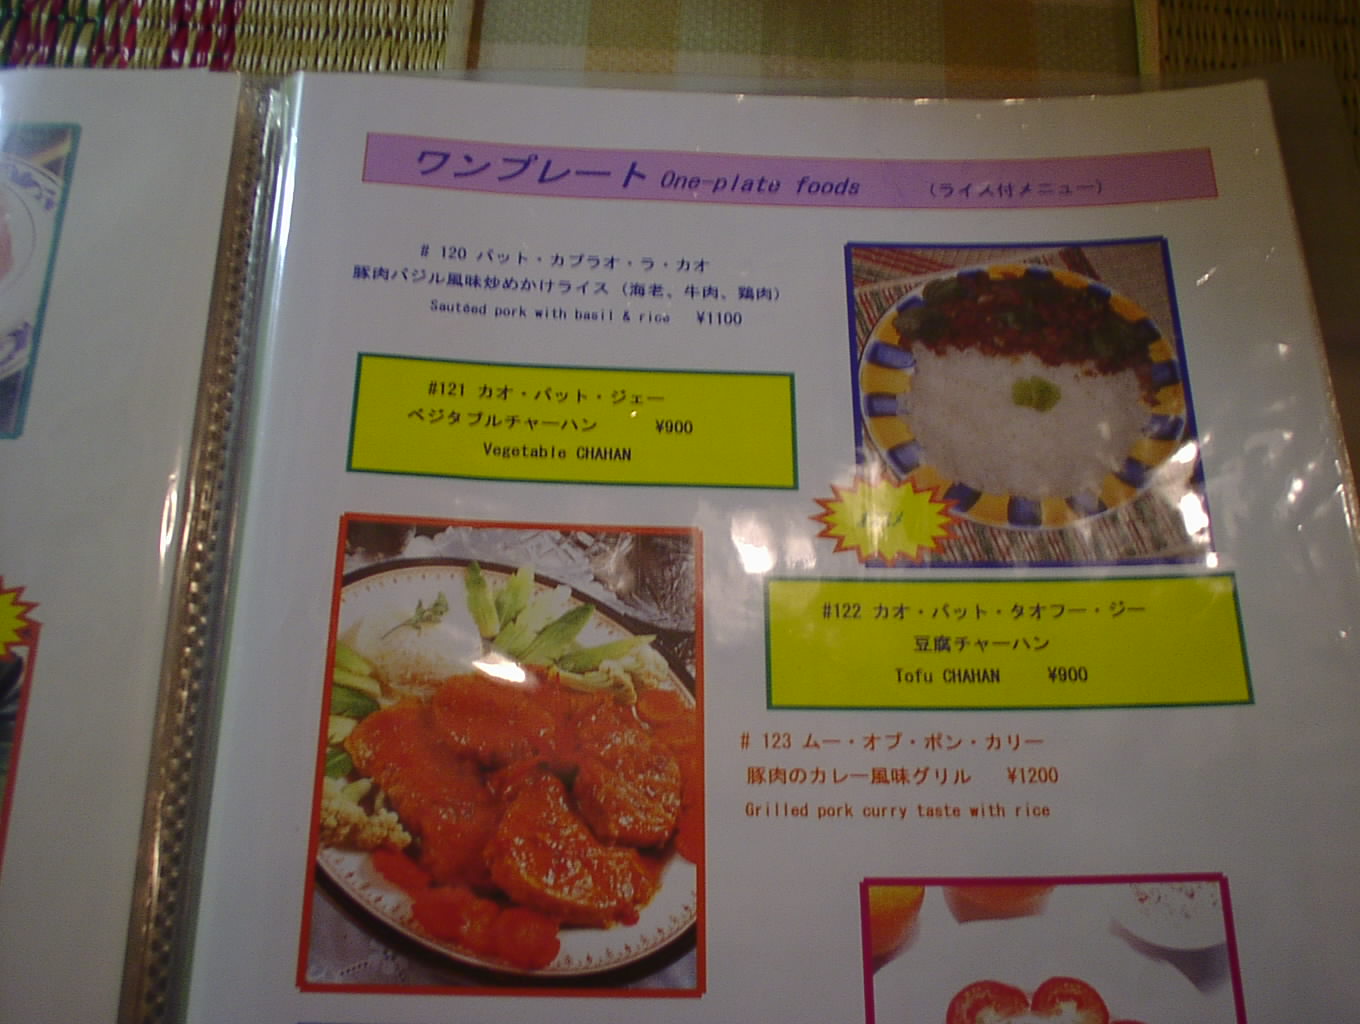 ワンプレート One-plate foods （ライス付メニュー）
# 120 パット・カプラオ・ラ・カオ
豚肉バジル風味炒めかけライス（海老、牛肉、鶏肉）
Sauteed pork with basil & rice ¥1100
#121 カオ・パット・ジェー
ベジタブルチャーハン ¥900
Vegetable CHAHAN
#122 カオ・パット・タオフー・ジー
豆腐チャーハン
Tofu CHAHAN ¥900
# 123 ムー・オブ・ポン・カリー
豚肉のカレー風味グリル ¥1200
Grilled pork curry taste with rice